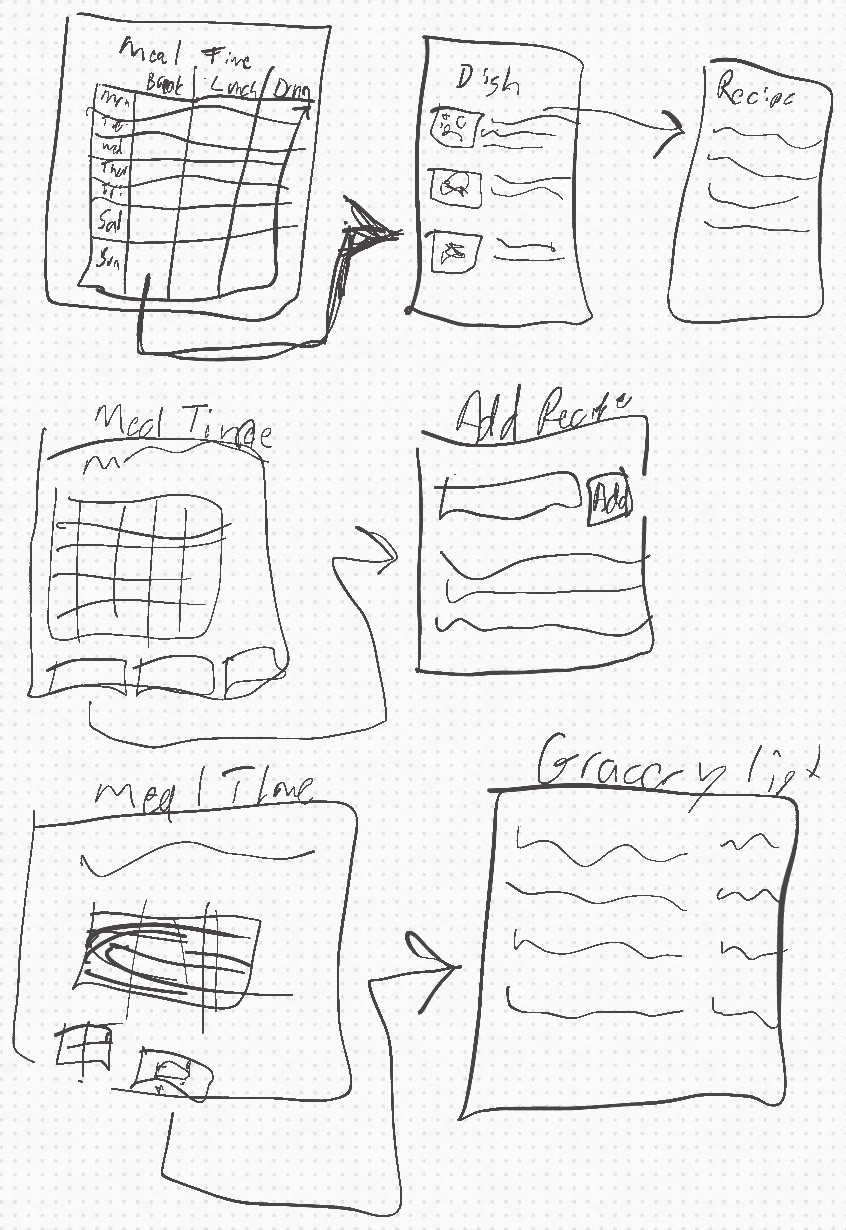 Meal Time
Break Lunch Dinn
Mon
Tue
Wed
Thur
Fri
Sat
Sun
Dish
Recipe
Meal Time
Add Recipe
Add
Meal Time
Grocery list